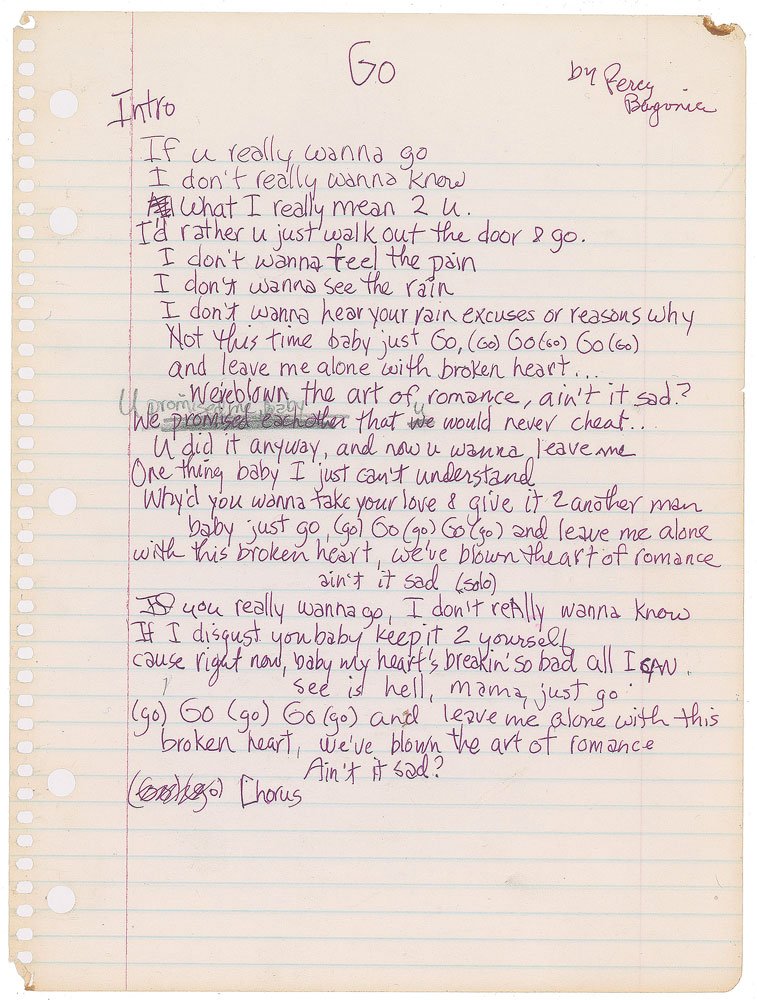 Go
by Percy
Bagonia
Intro
If u really wanna go
I don't really wanna know
What I really mean 2 u.
I'd rather u just walk out the door & go.
I don't wanna feel the pain
I don't wanna see the rain
I don't wanna hear your rain excuses or reasons why
Not this time baby just Go, (Go) Go (Go) Go (Go)
and leave me alone with broken heart...
We've blown the art of romance, ain't it sad?
U promised me, baby
We promised each other that we would never cheat...
U did it anyway, and now u wanna leave me
One thing baby I just can't understand
Why'd you wanna take your love & give it 2 another man
baby just go, (go) Go (go) Go (go) and leave me alone
with this broken heart, we've blown the art of romance
ain't it sad (solo)
If you really wanna go, I don't really wanna know
If I disgust you baby keep it 2 yourself
cause right now, baby my heart's breakin' so bad all I CAN
see is hell, mama, just go
(go) Go (go) Go (go) and leave me alone with this
broken heart, we've blown the art of romance
Ain't it sad?
go) Chorus